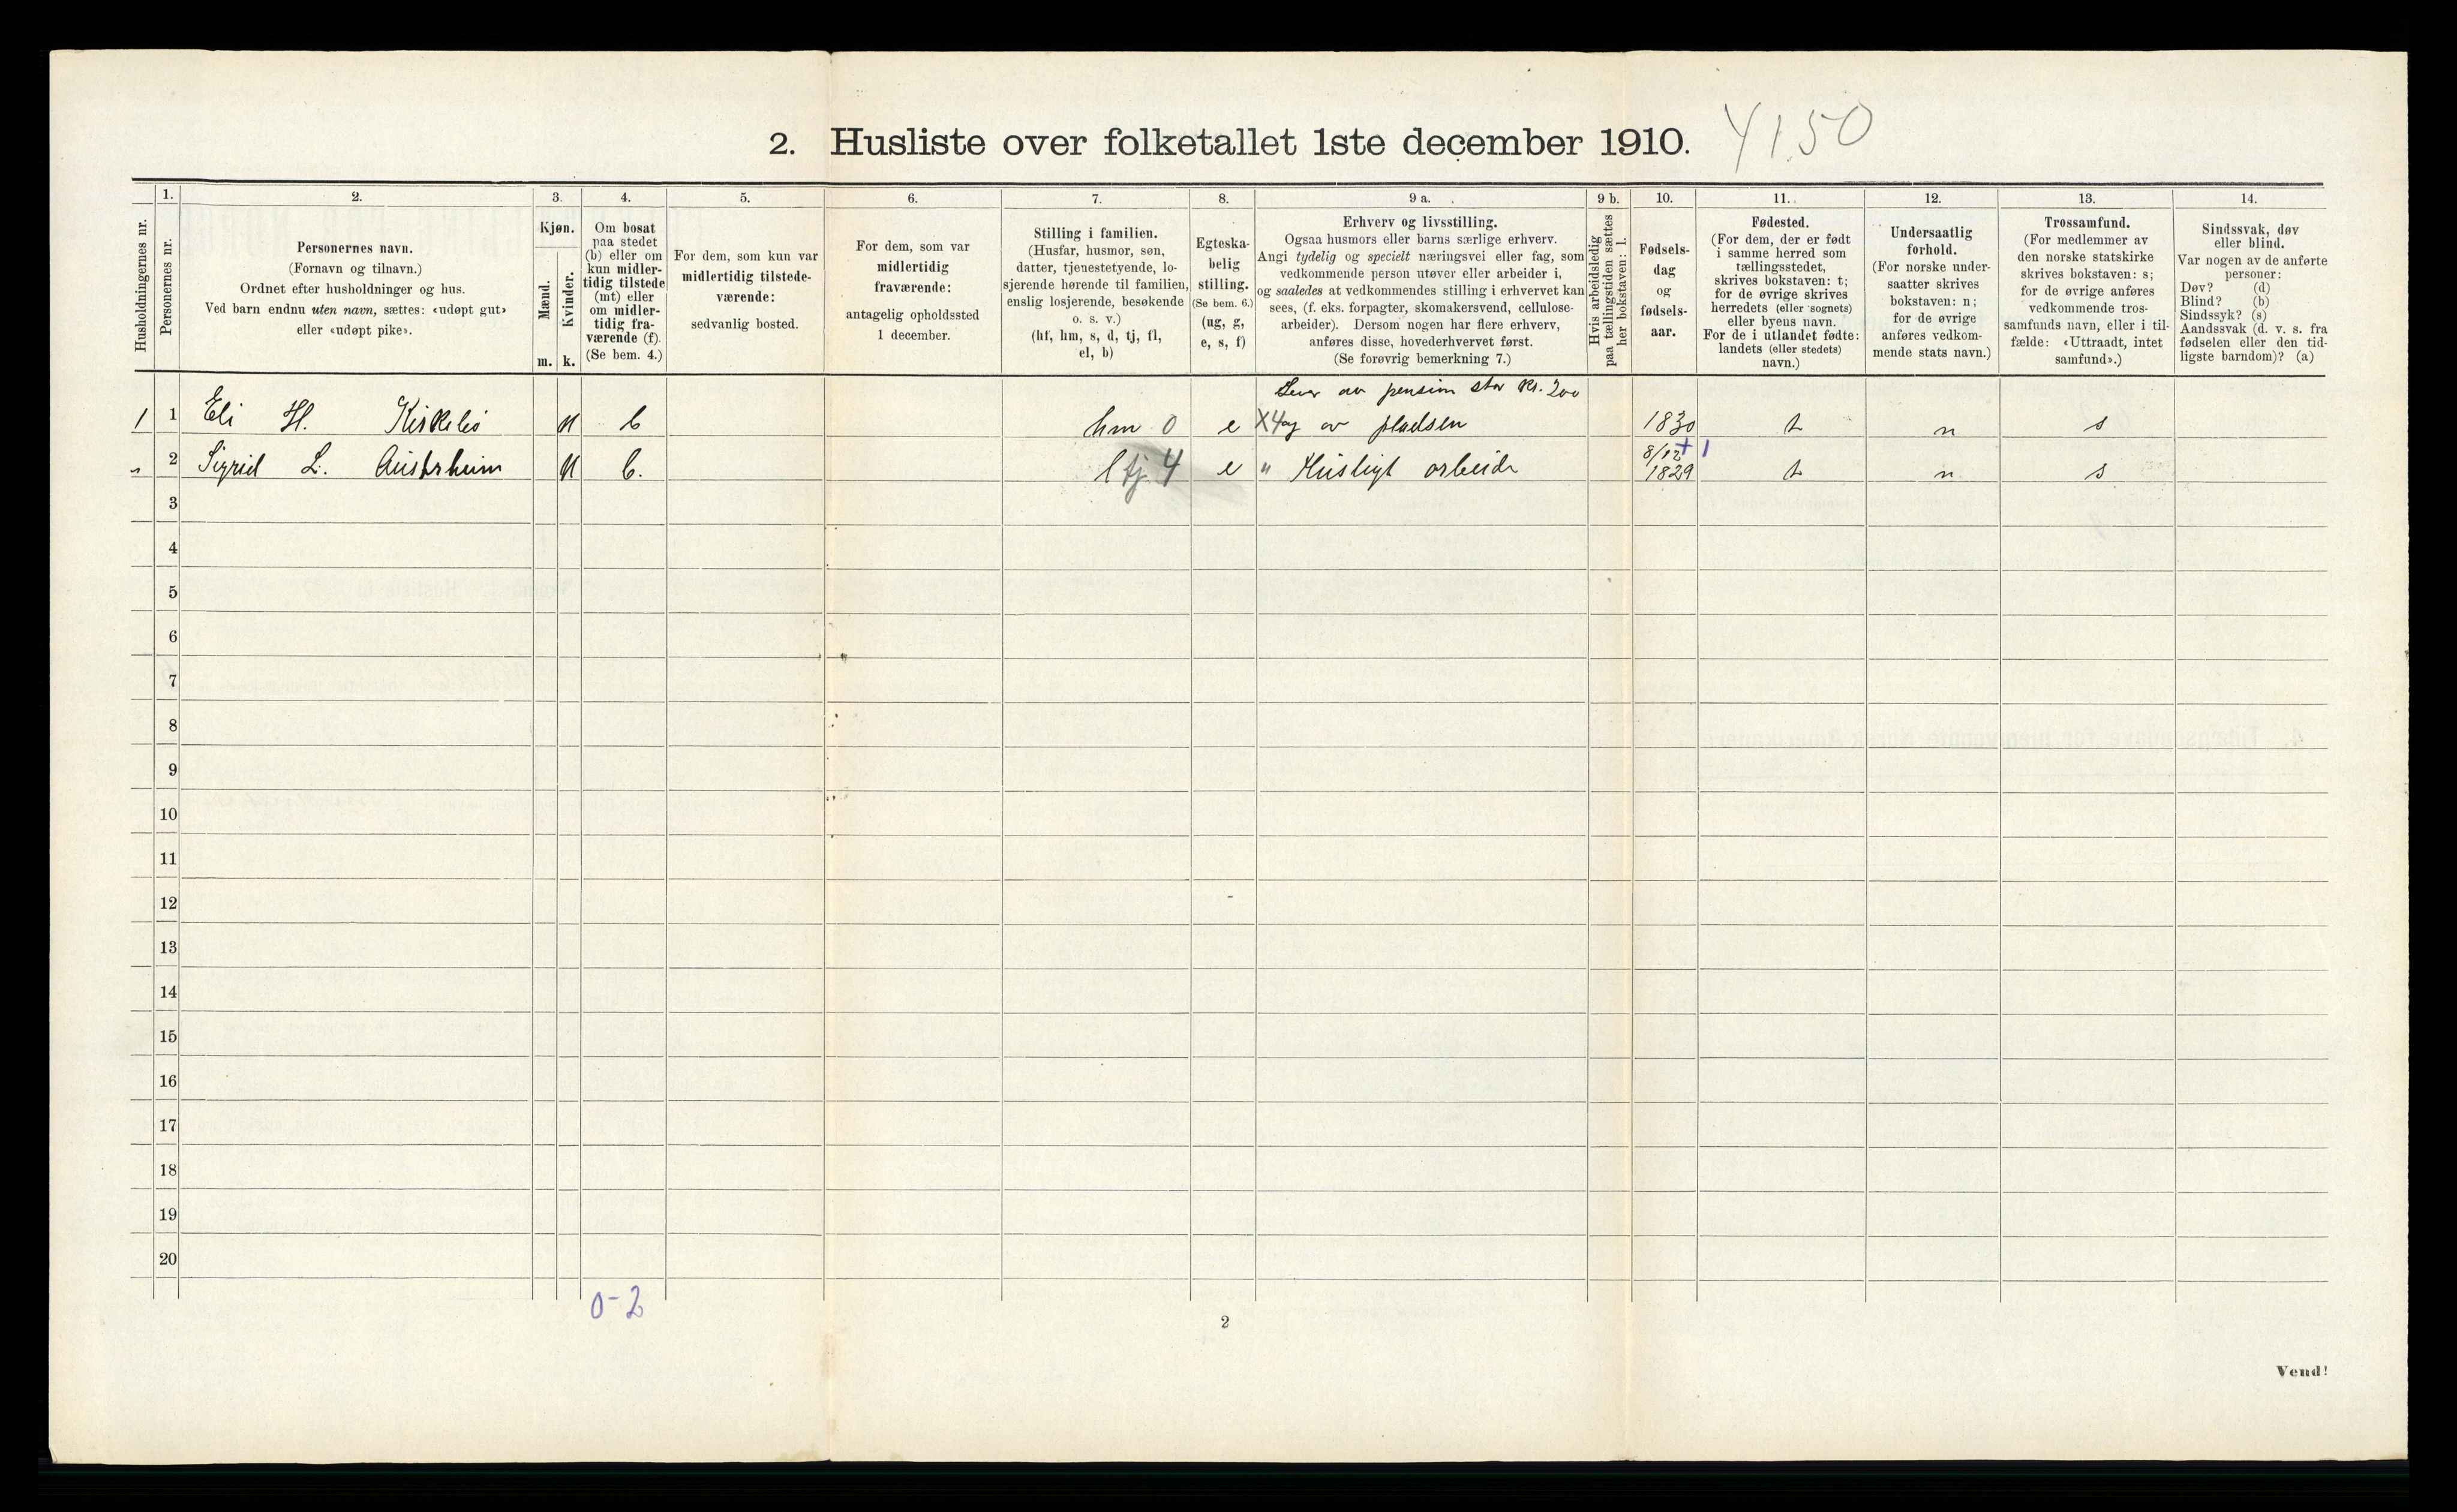 2. Husliste over folketallet 1ste december 1910. 4150
1. 2. 3. 4. 5. 6. 7. 8. 9 a. 9 b. 10. 11. 12. 13. 14.
Husholdningernes nr.
Personernes nr.
Personernes navn.
(Fornavn og tilnavn.)
Ordnet efter husholdninger og hus.
Ved barn endnu uten navn, sættes: «udøpt gut»
eller «udøpt pike».
Kjøn.
Mænd.
Kvinder.
m. k.
Om bosat
paa stedet
(b) eller om
kun midler-
tidig tilstede
(mt) eller
om midler-
tidig fra-
værende (f).
(Se bem. 4.)
For dem, som kun var
midlertidig tilstede-
værende:
sedvanlig bosted.
For dem, som var
midlertidig
fraværende:
antagelig opholdssted
1 december.
Stilling i familien.
(Husfar, husmor, søn,
datter, tjenestetyende, lo-
sjerende hørende til familien,
enslig losjerende, besøkende
o. s. v.)
(hf, hm, s, d, tj, fl,
el, b)
Egteska-
belig
stilling.
(Se bem. 6.)
(ug, g,
e, s, f)
Erhverv og livsstilling.
Ogsaa husmors eller barns særlige erhverv.
Angi tydelig og specielt næringsvei eller fag, som
vedkommende person utøver eller arbeider i,
og saaledes at vedkommendes stilling i erhvervet kan
sees, (f. eks. forpagter, skomakersvend, cellulose-
arbeider). Dersom nogen har flere erhverv,
anføres disse, hovederhvervet først.
(Se forøvrig bemerkning 7.)
Hvis arbeidsledig
paa tællingstiden sættes
her bokstaven: l.
Fødsels-
dag
og
fødsels-
aar.
Fødested.
(For dem, der er født
i samme herred som
tællingsstedet,
skrives bokstaven: t;
for de øvrige skrives
herredets (eller sognets)
eller byens navn.
For de i utlandet fødte:
landets (eller stedets)
navn.)
Undersaatlig
forhold.
(For norske under-
saatter skrives
bokstaven: n;
for de øvrige
anføres vedkom-
mende stats navn.)
Trossamfund.
(For medlemmer av
den norske statskirke
skrives bokstaven: s;
for de øvrige anføres
vedkommende tros-
samfunds navn, eller i til-
fælde: «Uttraadt, intet
samfund».)
Sindssvak, døv
eller blind.
Var nogen av de anførte
personer:
Døv? (d)
Blind? (b)
Sindssyk? (s)
Aandssvak (d. v. s. fra
fødselen eller den tid-
ligste barndom)? (a)
Lever av pension stor kr. 200
1 1 Eli H. Kirkebø k b hm 0 e X4 og av pladsen 1830 t n s
8/12 + 1
" 2 Sigrid L. Austrheim k b. tj 4 e " Husligt arbeide 1829 t n s
3
4
5
6
7
8
9
10
11
12
13
14
15
16
17
18
19
20
0-2
2
Vend!